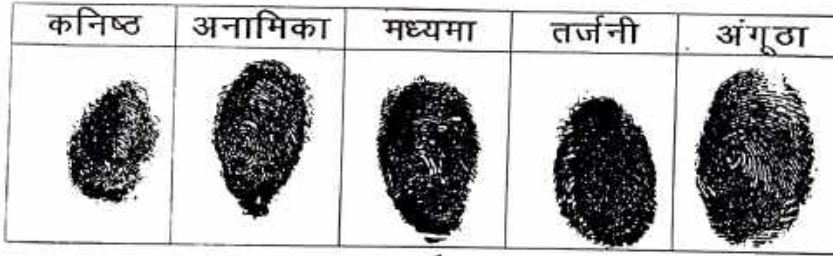 कनिष्ठ अनामिका मध्यमा तर्जनी अंगूठा